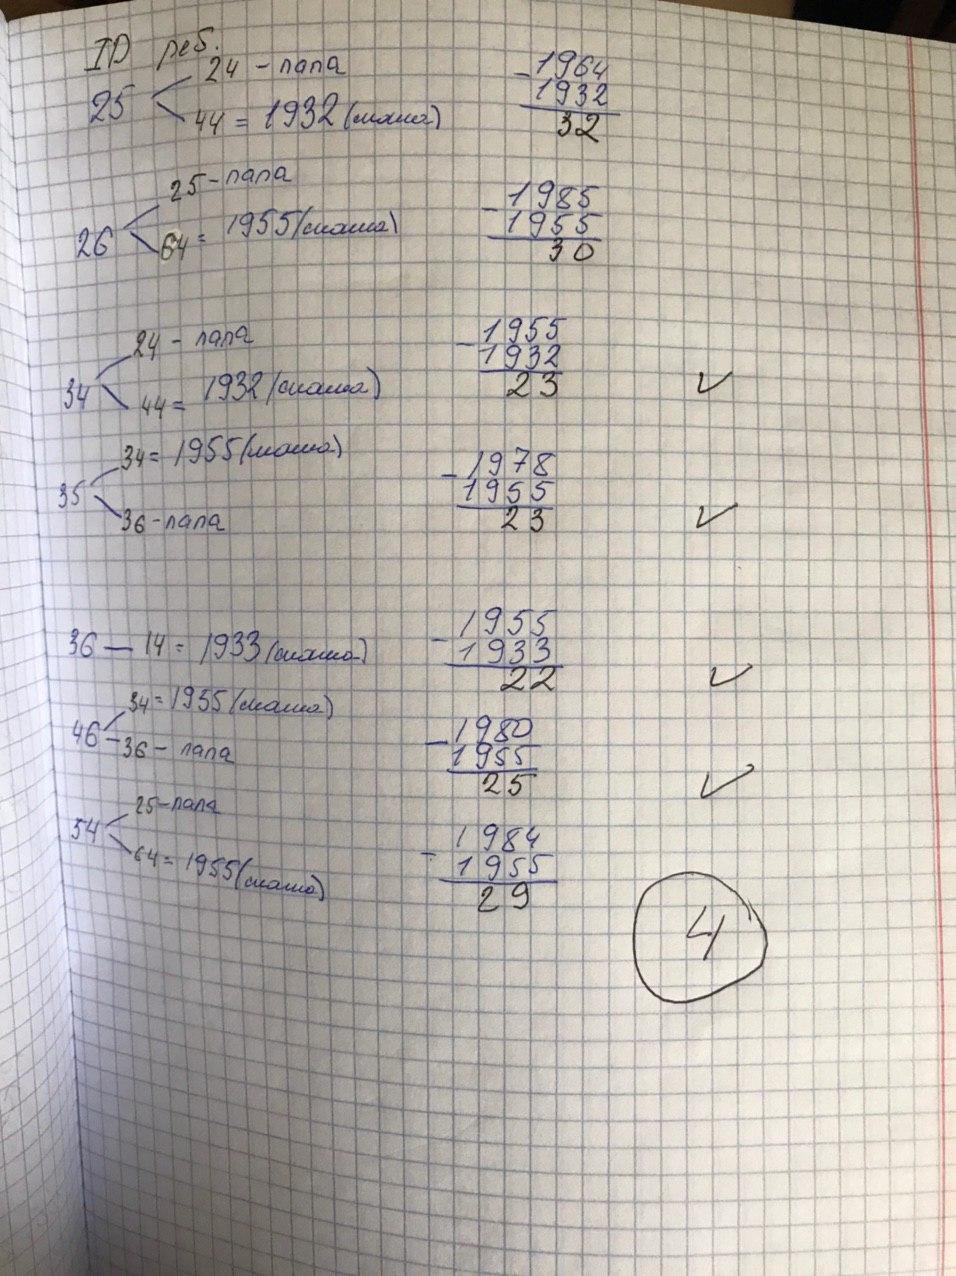 ID реб.
25 < 24 - папа
44 = 1932 (мама)
- 1964
1932
32
26 < 25 - папа
64 = 1955 (мама)
- 1985
1955
30
34 < 24 - папа
44 = 1932 (мама)
- 1955
1932
23 ✓
35 < 34 = 1955 (мама)
36 - папа
- 1978
1955
23 ✓
36 — 14 = 1933 (мама)
- 1955
1933
22 ✓
46 < 34 = 1955 (мама)
36 - папа
- 1980
1955
25 ✓
54 < 25 - папа
64 = 1955 (мама)
- 1984
1955
29
4